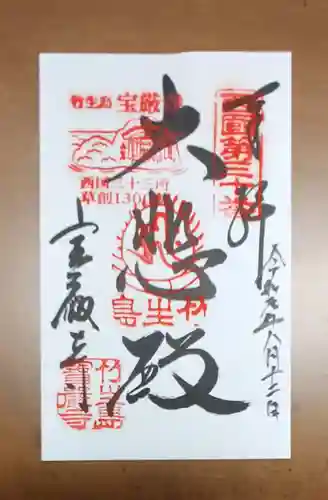 奉拝
西国第三十番
令和七年八月十二日
竹生島 宝厳寺
西国三十三所
草創1300年
大悲殿
竹生島
宝厳寺
竹生島
宝厳寺